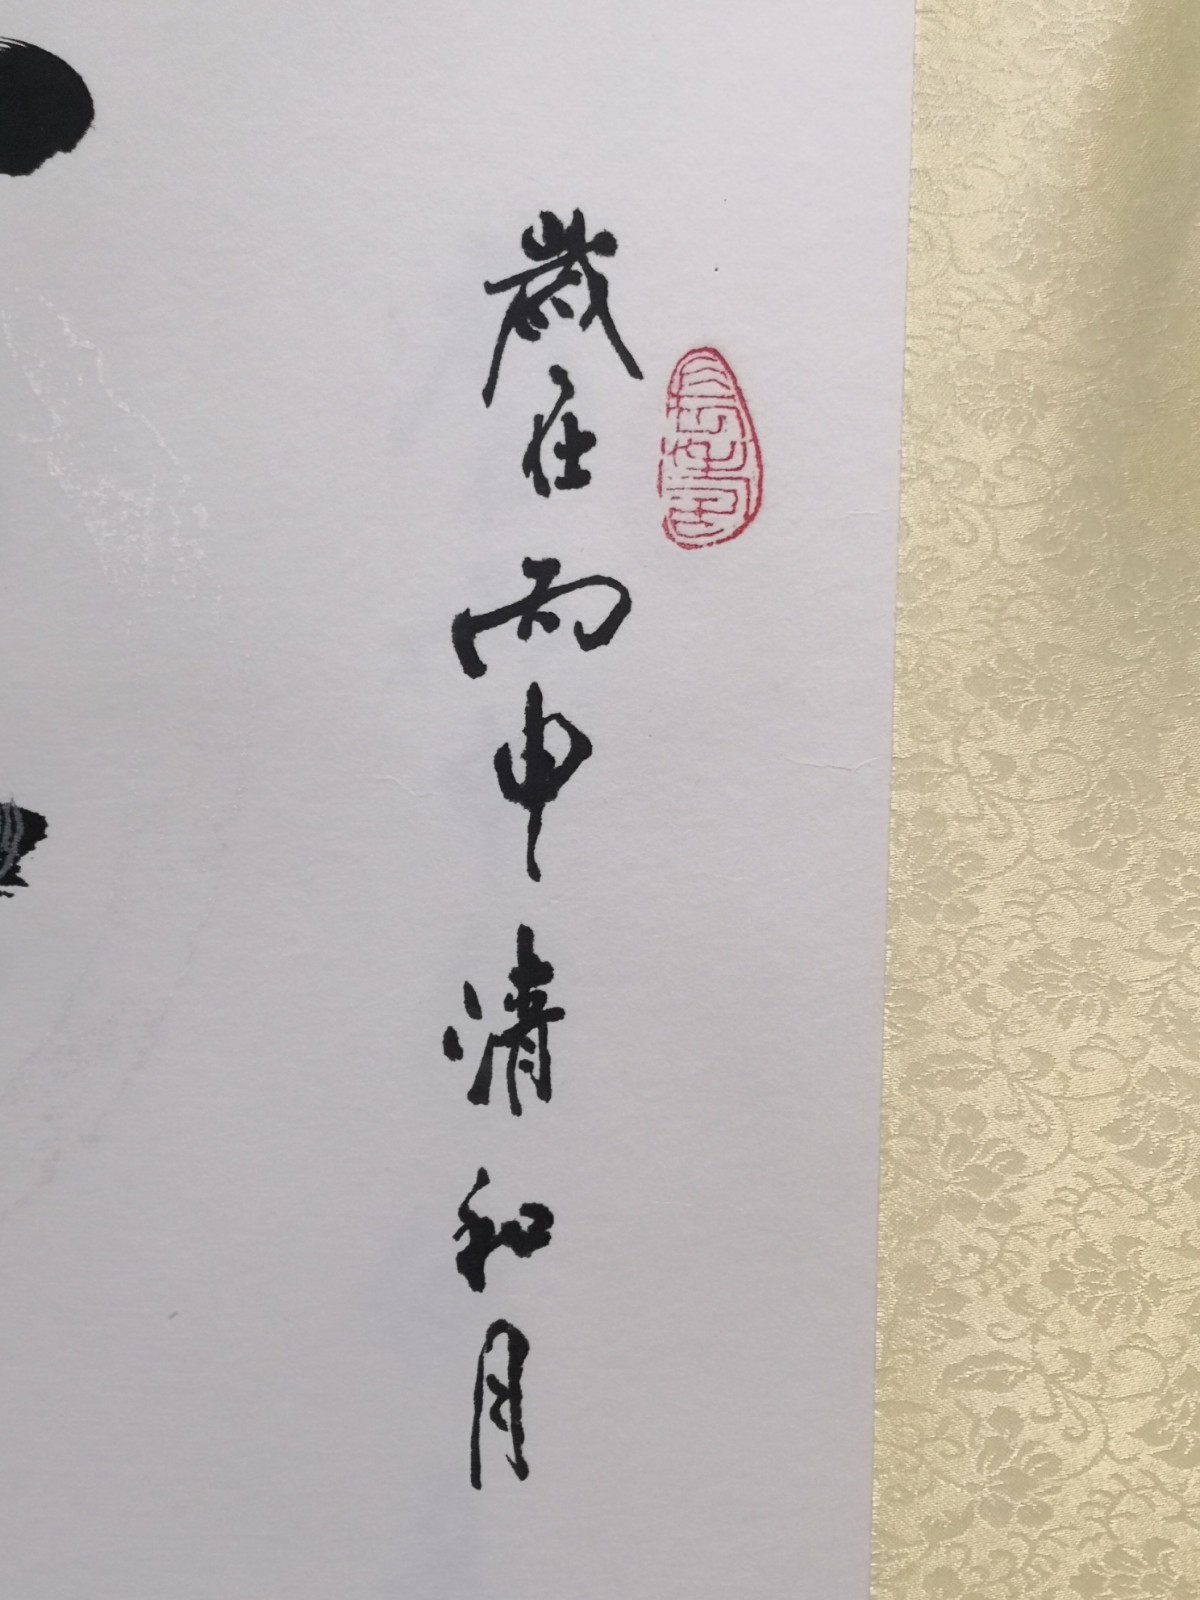 歲在丙申清和月